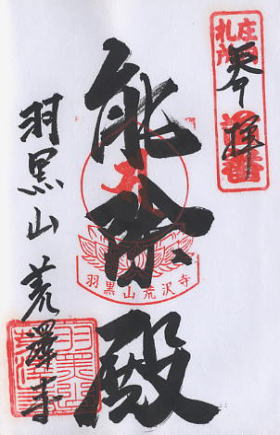 奉拝
庄内
札所
番
能除殿
羽黒山荒沢寺
羽黒山 荒澤寺